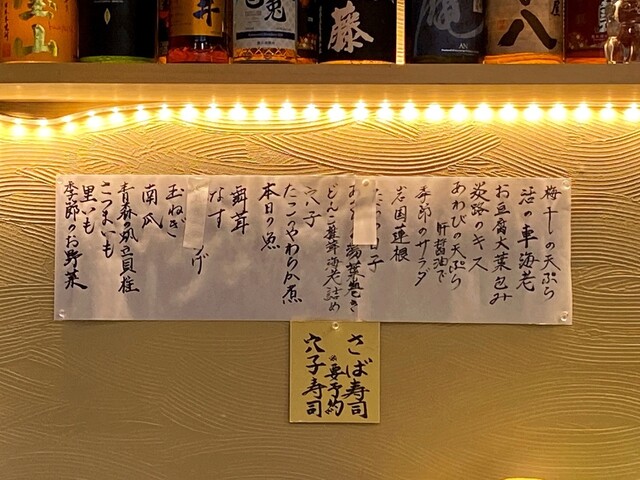 梅干しの天ぷら
活の車海老
お豆腐大葉包み
淡路のキス
あわびの天ぷら
肝醤油で
季節のサラダ
岩国蓮根
子
湯葉巻き
どんこ椎茸海老詰め
穴子
たこのやわらか煮
本日の魚
舞茸
なす
げ
玉ねぎ
南瓜
青森の帆立貝柱
さつまいも
里いも
季節のお野菜
さば寿司
※要予約
穴子寿司
宝山
井
兎
藤
八